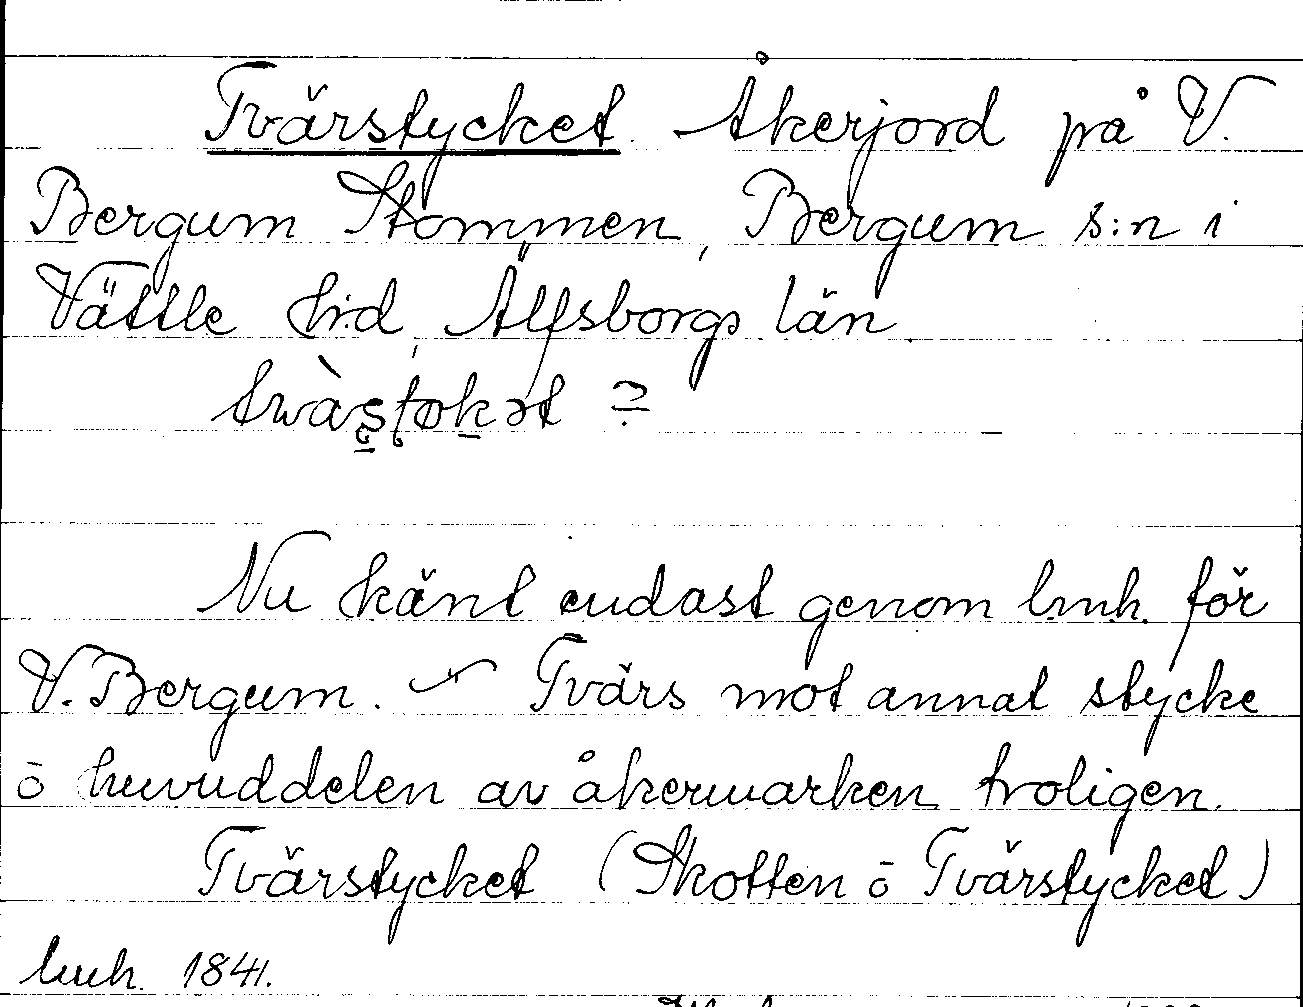 Tvärstycket. Åkerjord på V.
Bergum Stommen, Bergum s:n i
Vättle h:d, Älfsborgs län.
Nu känt endast genom lmh. för
V. Bergum. Tvärs mot annat stycke
o huvuddelen av åkermarken troligen.
Tvärstycket (Skotten o Tvärstycket)
lmh. 1841.